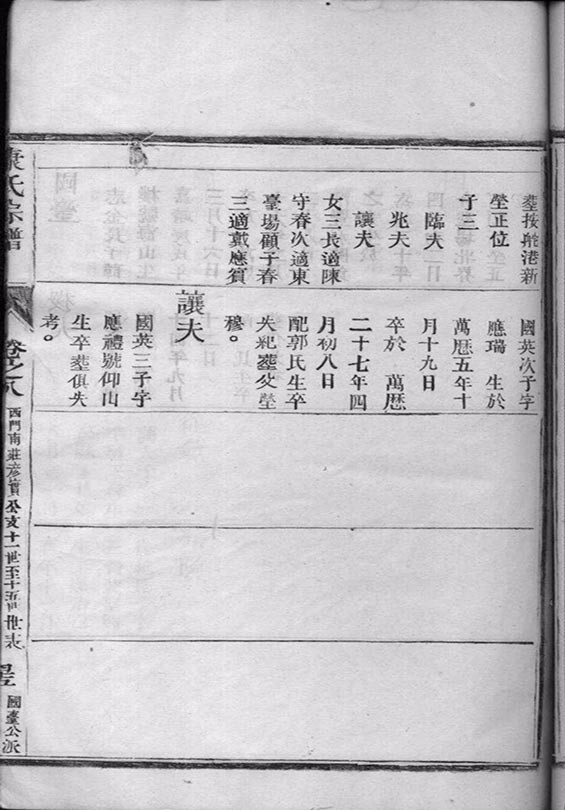 葬按舵港新
塋正位
子三
臨夫
兆夫
讓夫
女三長適陳
守春次適東
臺場顧子春
三適戴應賓
國英次子字
應瑞 生於
萬曆五年十
月十九日
卒於 萬曆
二十七年四
月初八日
配郭氏生卒
失紀葬父塋
穆。
讓夫
國英三子字
應禮號仰山
生卒葬俱失
考。
氏宗譜
卷之八
西門南莊彦賓公支十一世至十五世世表
國臺公派